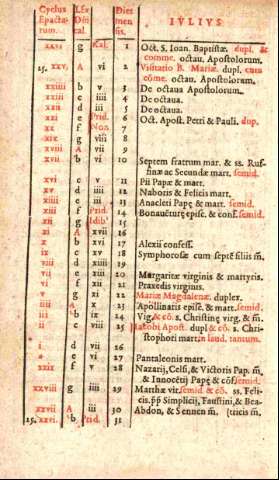 Cyclus Epactarum. | Lr̃a Dñical. | Dies mensis. | IVLIVS
xxvi g Kal. 1 Oct. S. Ioan. Baptistæ. dupl. &
comme. octau. Apostolorum.
25. xxv. A vi 2 Visitatio B. Mariæ. dupl. cum
cõme. octau. Apostolorum.
xxiiii b v 3 De octaua Apostolorum.
xxiii c iiii 4 De octaua.
xxii d iii 5 De octaua.
xxi e Prid. 6 Oct. Apost. Petri & Pauli. dup.
xx f Non. 7
xix g viii 8
xviii A vii 9
xvii b vi 10 Septem fratrum mar. & ss. Ruf-
finæ ac Secundæ mart. semid.
xvi c v 11 Pii Papæ & mart.
xv d iiii 12 Naboris & Felicis mart.
xiiii e iii 13 Anacleti Papę & mart. semid.
xiii f Prid. 14 Bonauẽturę episc. & conf. semid.
xii g Idib. 15
xi A xvii 16
x b xvi 17 Alexii confess.
ix c xv 18 Symphorosæ cum septẽ filiis m̃.
viii d xiiii 19
vii e xiii 20 Margaritæ virginis & martyris.
vi f xii 21 Praxedis virginis.
v g xi 22 Mariæ Magdalenæ. duplex.
iiii A x 23 Apollinaris episc. & mart. semid.
iii b ix 24 Vig. & cõ. s. Christinę virg. & m̃.
ii c viii 25 Iacobi Apost. dupl & cõ. s. Chri-
stophori mart. in laud. tantum.
i d vii 26
e vi 27 Pantaleonis mart.
xxix f v 28 Nazarij, Celsi, & Victoris Pap. m̃,
& Innocẽtij Papę & cõf. semid.
xxviii g iiii 29 Marthæ vir. semid. & cõ. ss. Feli-
cis. pp̃ Simplicij, Faustini, & Bea-
xxvii A iii 30 Abdon, & Sennen m̃. (tricis m̃.
25. xxvi. b Prid. 31